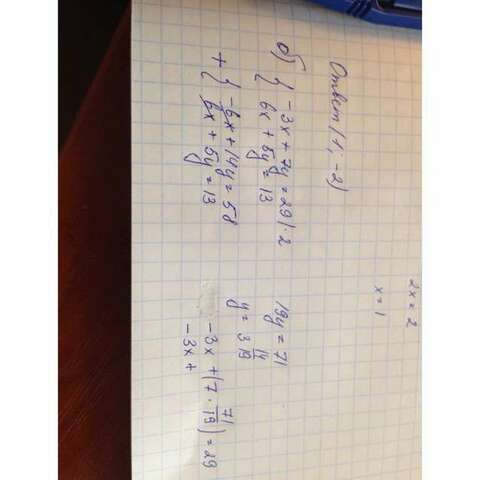 2x = 2
x = 1
Ответ (1; -2)
б) { -3x + 7y = 29 | · 2
6x + 5y = 13
+ { -6x + 14y = 58
6x + 5y = 13
19y = 71
y = 3 14/19
-3x + (7 · 71/19) = 29
-3x +